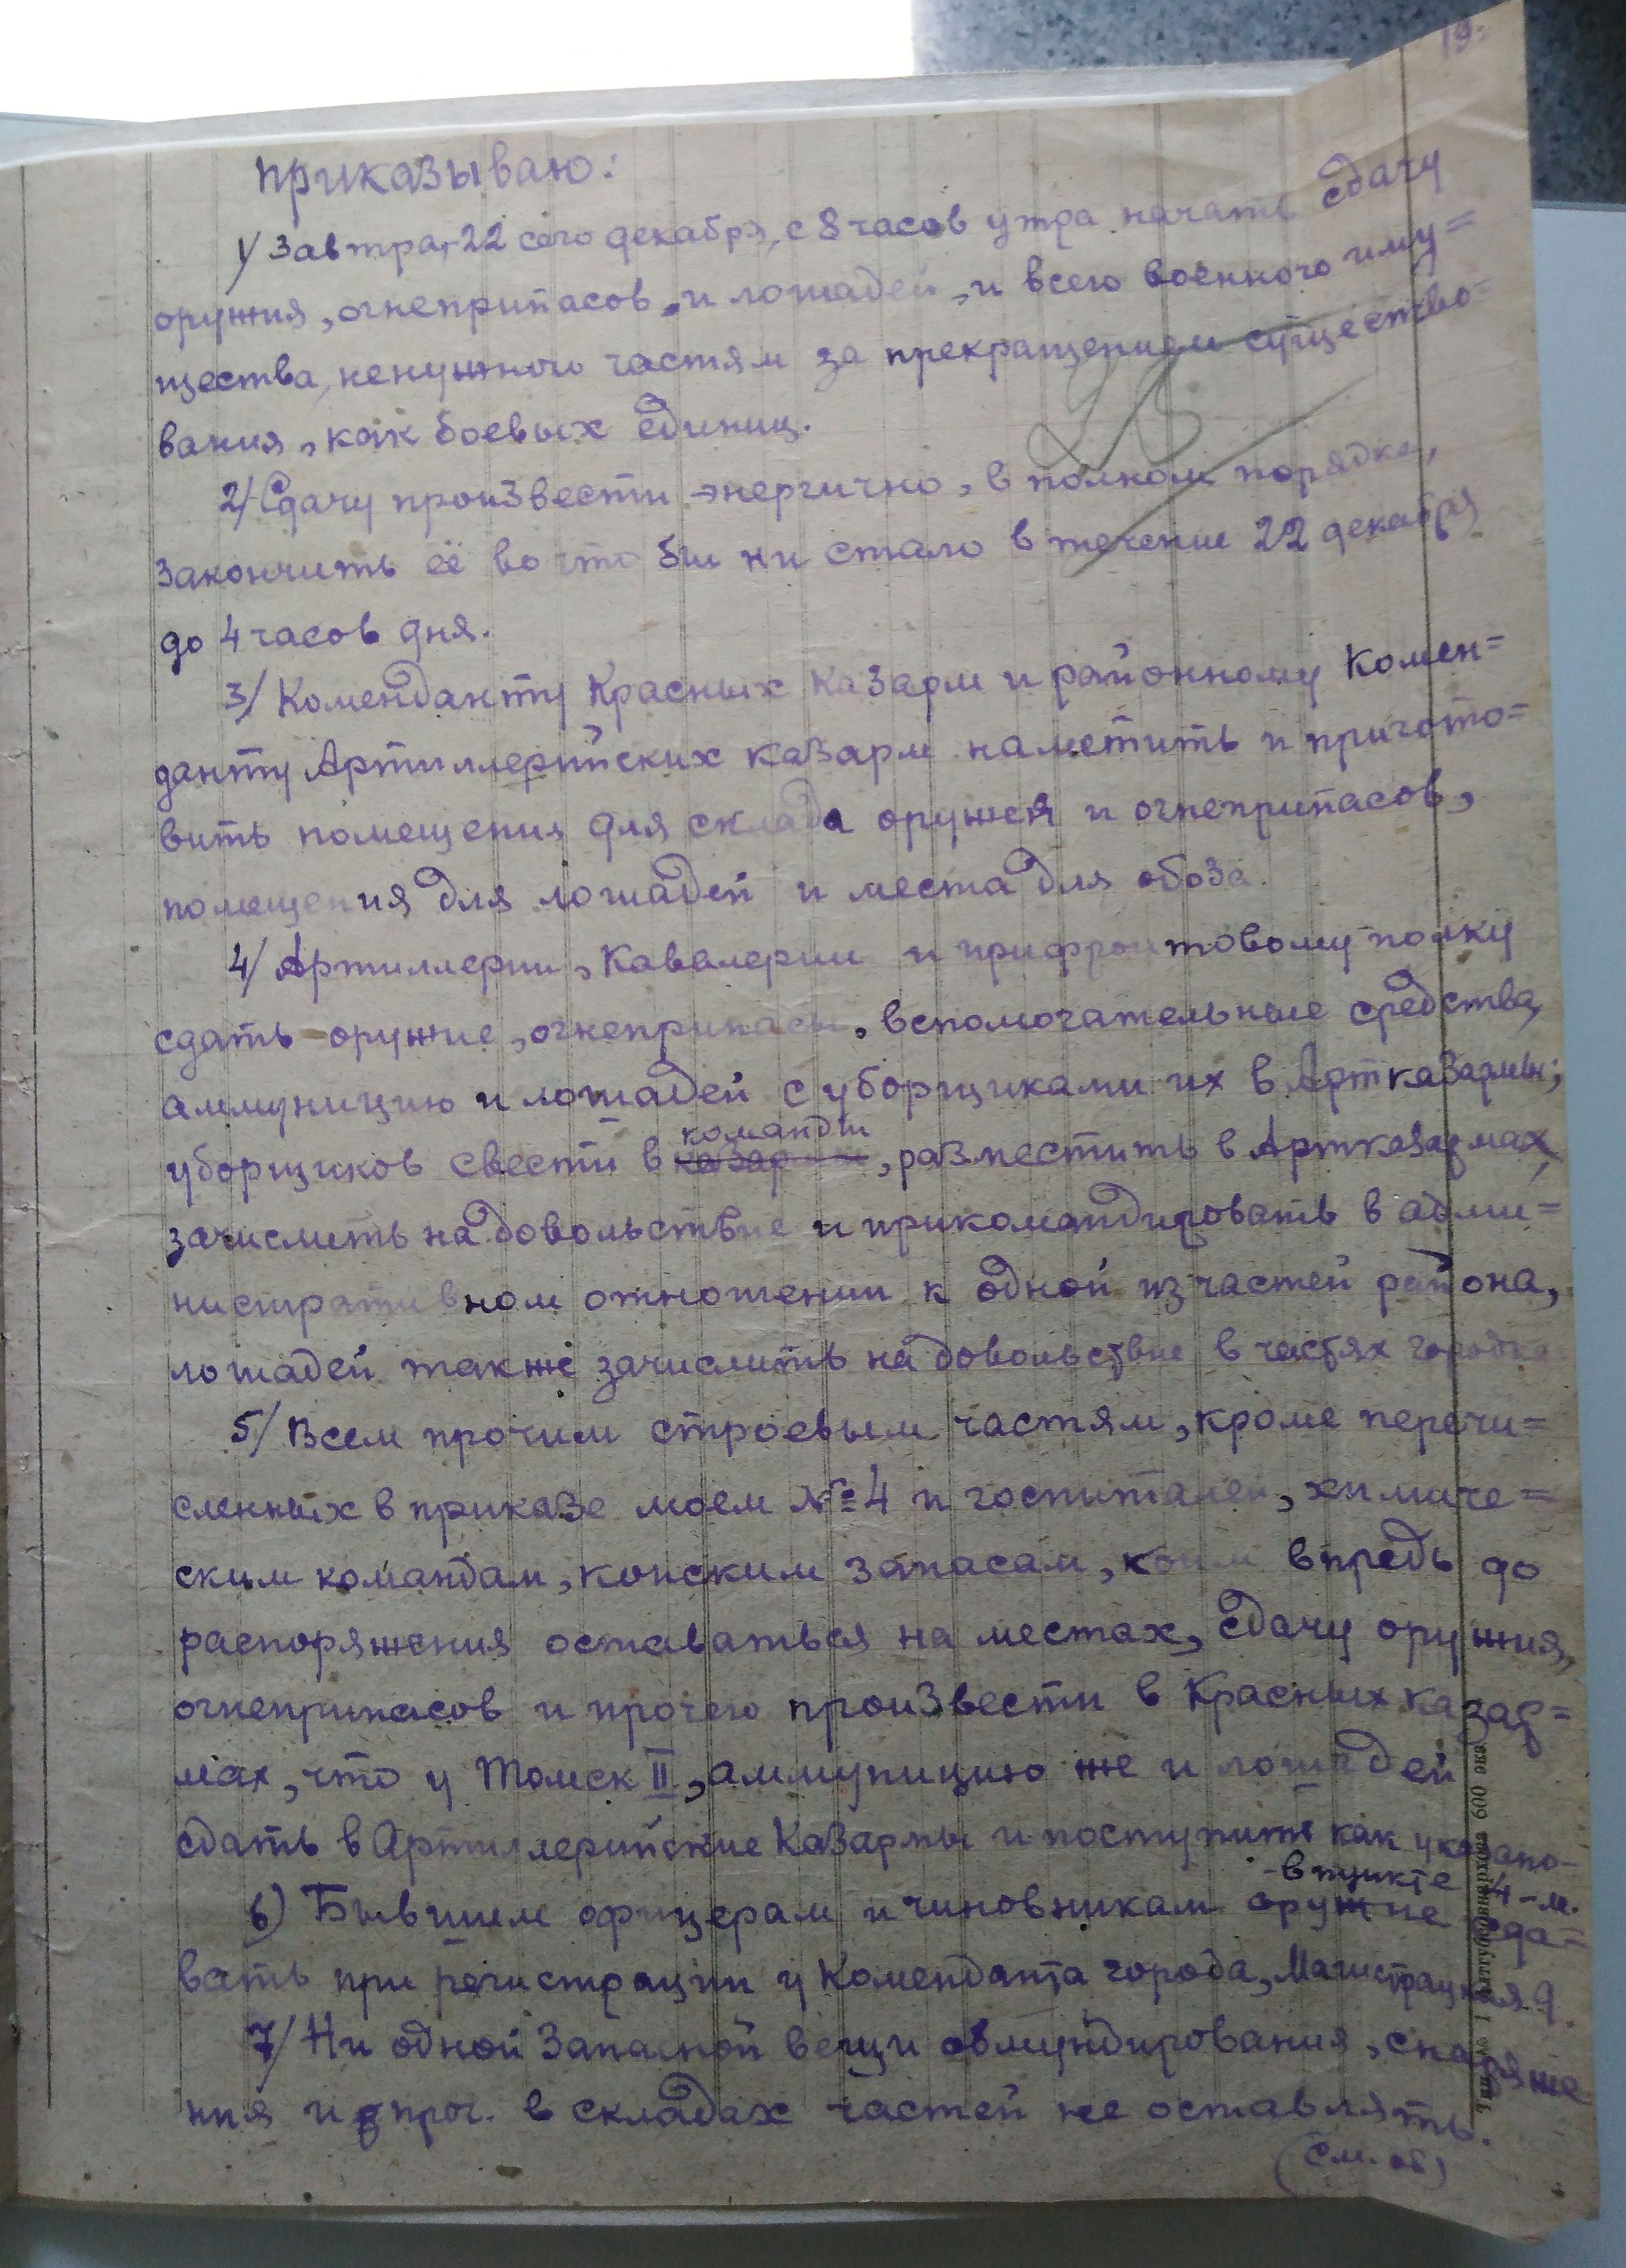 19.
приказываю:
1/ Завтра, 22 сего декабря, с 8 часов утра начать сдачу
оружия, огнеприпасов, и лошадей, и всего военного иму=
щества, ненужного частям за прекращением существо=
вания, как боевых единиц.
2/ Сдачу произвести энергично, в полном порядке,
закончить её во что бы ни стало в течение 22 декабря
до 4 часов дня.
3/ Коменданту Красных казарм и районному Комен=
данту Артиллерийских казарм наметить и пригото=
вить помещения для склада оружия и огнеприпасов,
помещения для лошадей и места для обоза.
4/ Артиллерии, Кавалерии и прифронтовому полку
сдать оружие, огнеприпасы, вспомогательные средства,
аммуницию и лошадей с уборщиками их в Артказармы;
команды
уборщиков свести в казар, разместить в Артказармах,
зачислить на довольствие и прикомандировать в адми=
нистративном отношении к одной из частей района,
лошадей также зачислить на довольствие в частях городка
5/ Всем прочим строевым частям, кроме перечи=
сленных в приказе моем № 4 и госпиталей, химиче=
ским командам, конским запасам, коим впредь до
распоряжения оставаться на местах, сдачу оружия,
огнеприпасов и прочего произвести в Красных казар=
мах, что у Томск II, аммуницию же и лошадей
сдать в Артиллерийские Казармы и поступить как указано-
-в пункте 4-м.
6) Бывшим офицерам и чиновникам оружие сда=
вать при регистрации у Коменданта города, Магистрацкая 9.
7/ Ни одной запасной вещи обмундирования, снаряже
ния и проч. в складах частей не оставлять.
(См. об)
600 экз